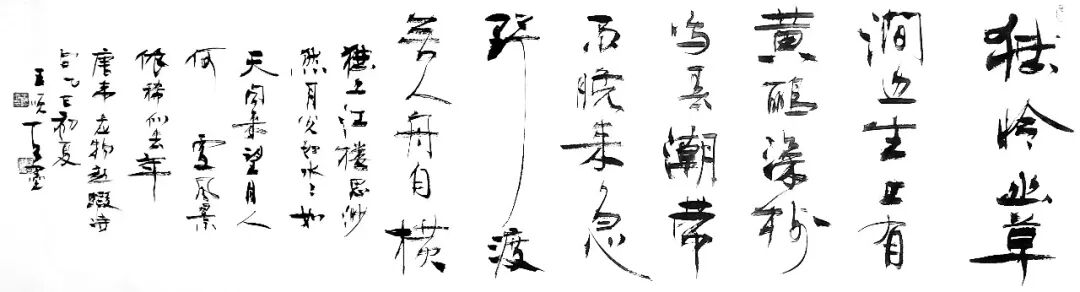 独怜幽草
涧边生上有
黄鹂深树
鸣春潮带
雨晚来急
野渡
无人舟自横
独上江楼思渺
然月光如水水如
天同来望月人
何处风景
依稀似去年
唐韦应物赵嘏诗
句乙巳初夏